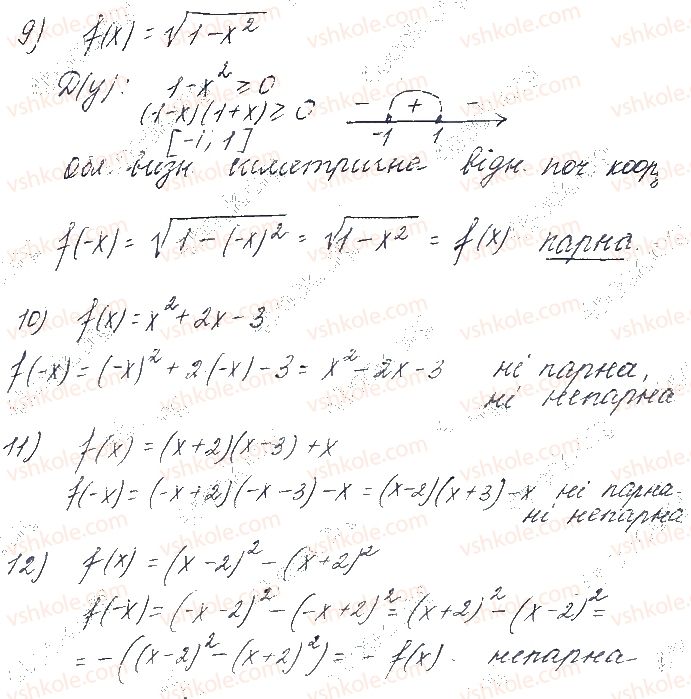 9) f(x) = √(1-x²)
D(y): 1-x² ≥ 0
(1-x)(1+x) ≥ 0
- + -
-1 1
[-1; 1]
Обл. визн симетрична відн. поч. коорд
f(-x) = √(1-(-x)²) = √(1-x²) = f(x) парна.
10) f(x) = x² + 2x - 3
f(-x) = (-x)² + 2(-x) - 3 = x² - 2x - 3 ні парна,
ні непарна
11) f(x) = (x+2)(x-3) + x
f(-x) = (-x+2)(-x-3) - x = (x-2)(x+3) - x ні парна
ні непарна
12) f(x) = (x-2)² - (x+2)²
f(-x) = (-x-2)² - (-x+2)² = (x+2)² - (x-2)² =
= -((x-2)² - (x+2)²) = - f(x). непарна
vshkole.com